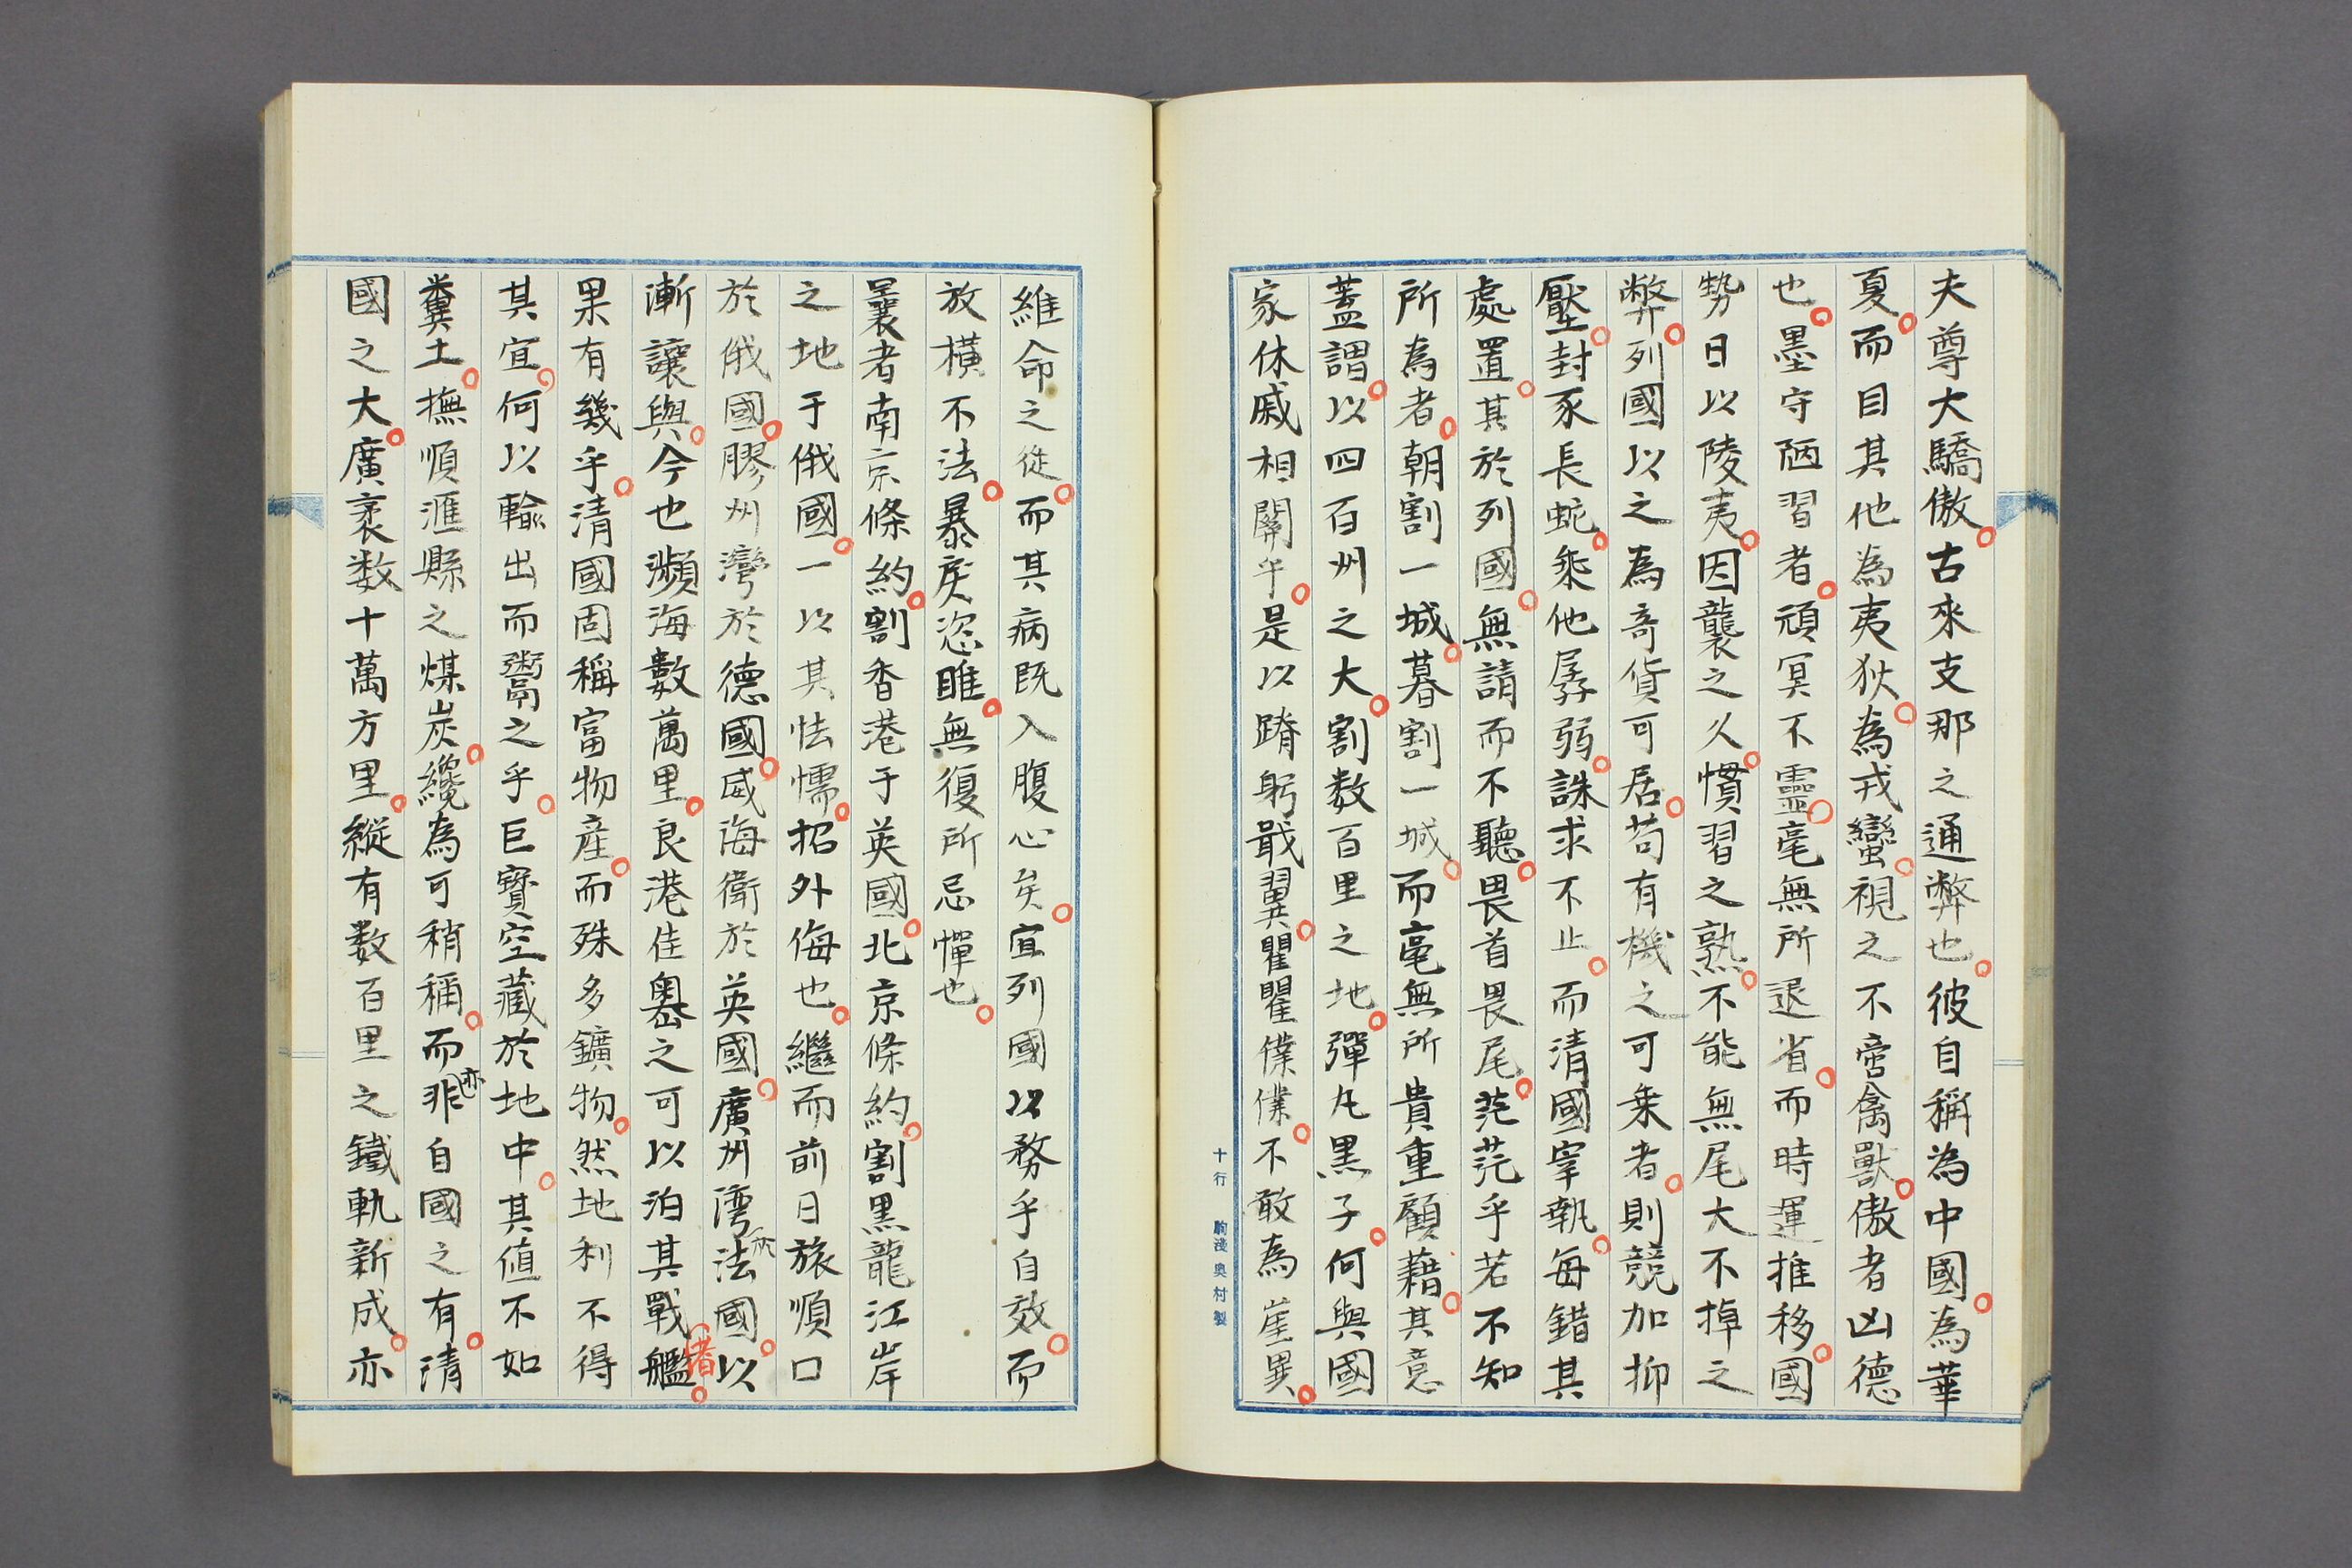 夫尊大驕傲。古來支那之通弊也。彼自稱為中國。為華
夏。而目其他為夷狄。為戎蠻。視之不啻禽獸。傲者凶德
也。墨守陋習者。頑冥不靈。毫無所退省。而時運推移。國
勢日以陵夷。因襲之久。慣習之熟。不能無尾大不掉之
弊。列國以之為奇貨可居。苟有機之可乗者。則競加抑
壓。封豕長蛇。乘他孱弱。誅求不止。而清國宰執。每錯其
處置。其於列國。無請而不聽。畏首畏尾。茫茫乎若不知
所為者。朝割一城。暮割一城。而毫無所貴重顧藉。其意
蓋謂。以四百州之大。割数百里之地。彈丸黒子。何與國
家休戚相關乎。是以蹐躬戢翼。瞿瞿僕僕。不敢為崖異。
十行 胸淺奥村製
維命之従。而其病既入腹心矣。宜列國以務乎自效。而
放横不法。暴戻恣睢。無復所忌憚也。
曩者南京條約。割香港于英國。北京條約。割黒龍江岸
之地于俄國。一以其怯懦。招外侮也。繼而前日旅順口
於俄國。膠州灣於德國。威海衛於英國。廣州湾於法國。以
漸讓與。今也瀕海數萬里。良港佳奥之可以泊其戰艦者。
果有幾乎。清國固稱富物産。而殊多鑛物。然地利不得
其宜。何以輸出而鬻之乎。巨寳空藏於地中。其値不如
糞土。撫順滙縣之煤炭。纔為可稍稱。而亦非自國之有。清
國之大。廣袤数十萬方里。縱有数百里之鐵軌新成。亦